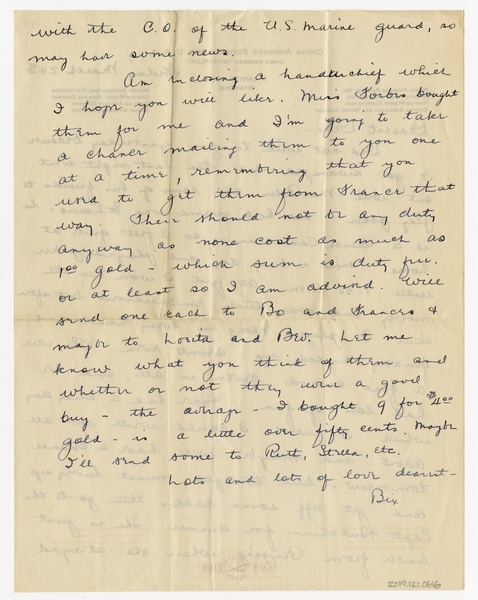 with the C.O. of the U.S. Marine guard, so
may have some news.
Am enclosing a handkerchief which
I hope you will like. Miss Forbes bought
them for me and I'm going to take
a chance mailing them to you one
at a time, remembering that you
used to get them from France that
way. There should not be any duty
anyway as none cost as much as
1.00 gold - which sum is duty free.
or at least so I am advised. Will
send one each to Bo and Frances &
maybe to Losita and Bev. Let me
know what you think of them and
whether or not they were a good
buy - the average - I bought 9 for $4.00
gold - is a little over fifty cents. Maybe
I'll send some to Ruth, Stella, etc.
Lots and lots of love dearest -
Bix
2019.121.0616